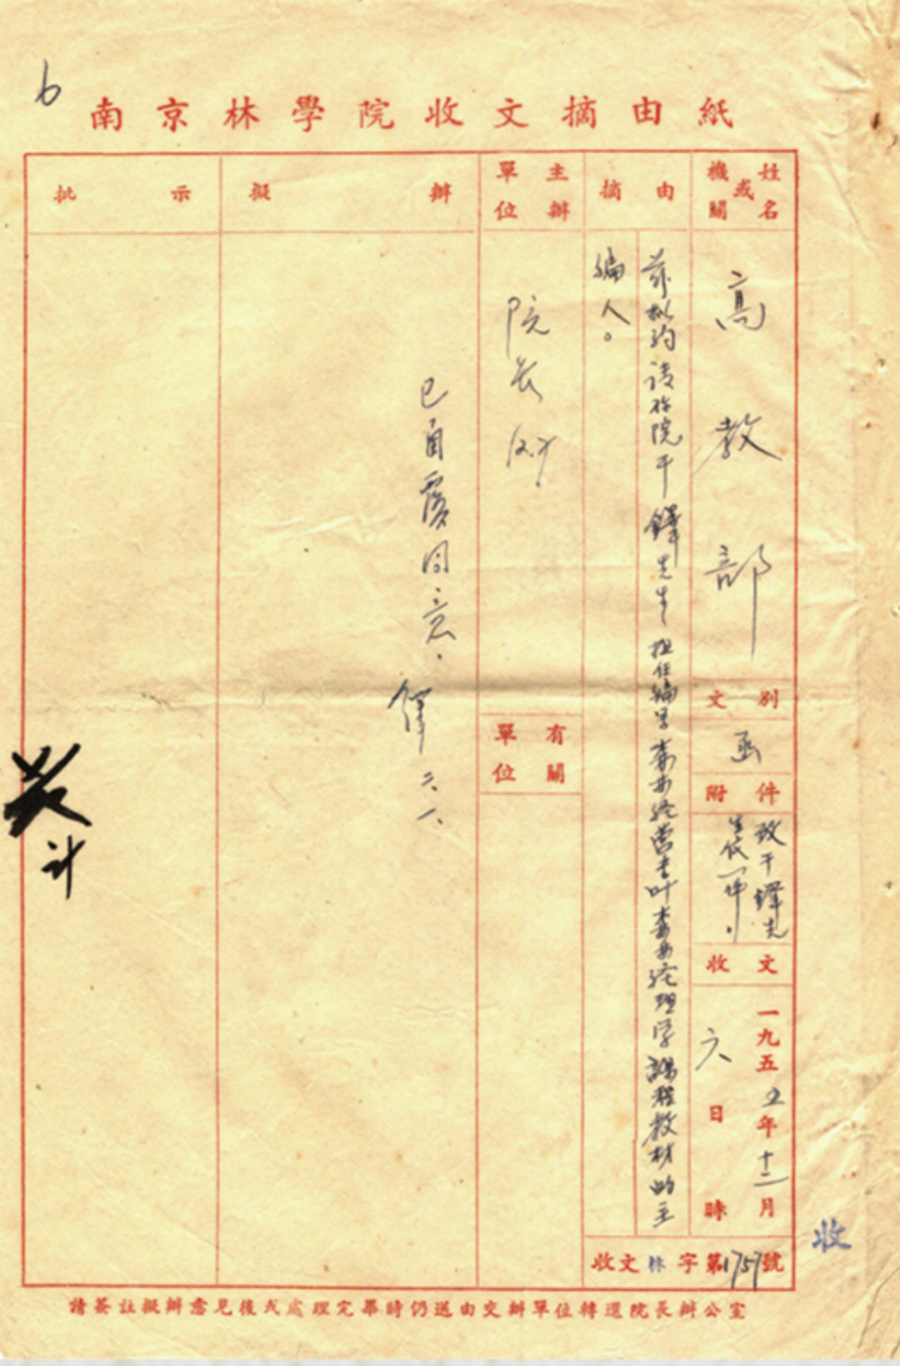 南京林學院收文摘由紙
姓名或機關
高教部
文別
函
附件
致干鐸先
生信一件。
收文
一九五五年十二月
六日 時
收文林字第1757號
摘由
茲擬約請你院干鐸先生担任編写森林经营 森林经理学課程教材的主
編人。
主辦單位
院长
有關單位
擬辦
已函覆同意。
鐸 六、一、
批示
計
收
6
請簽註擬辦意見後或處理完畢時仍送由交辦單位轉還院長辦公室